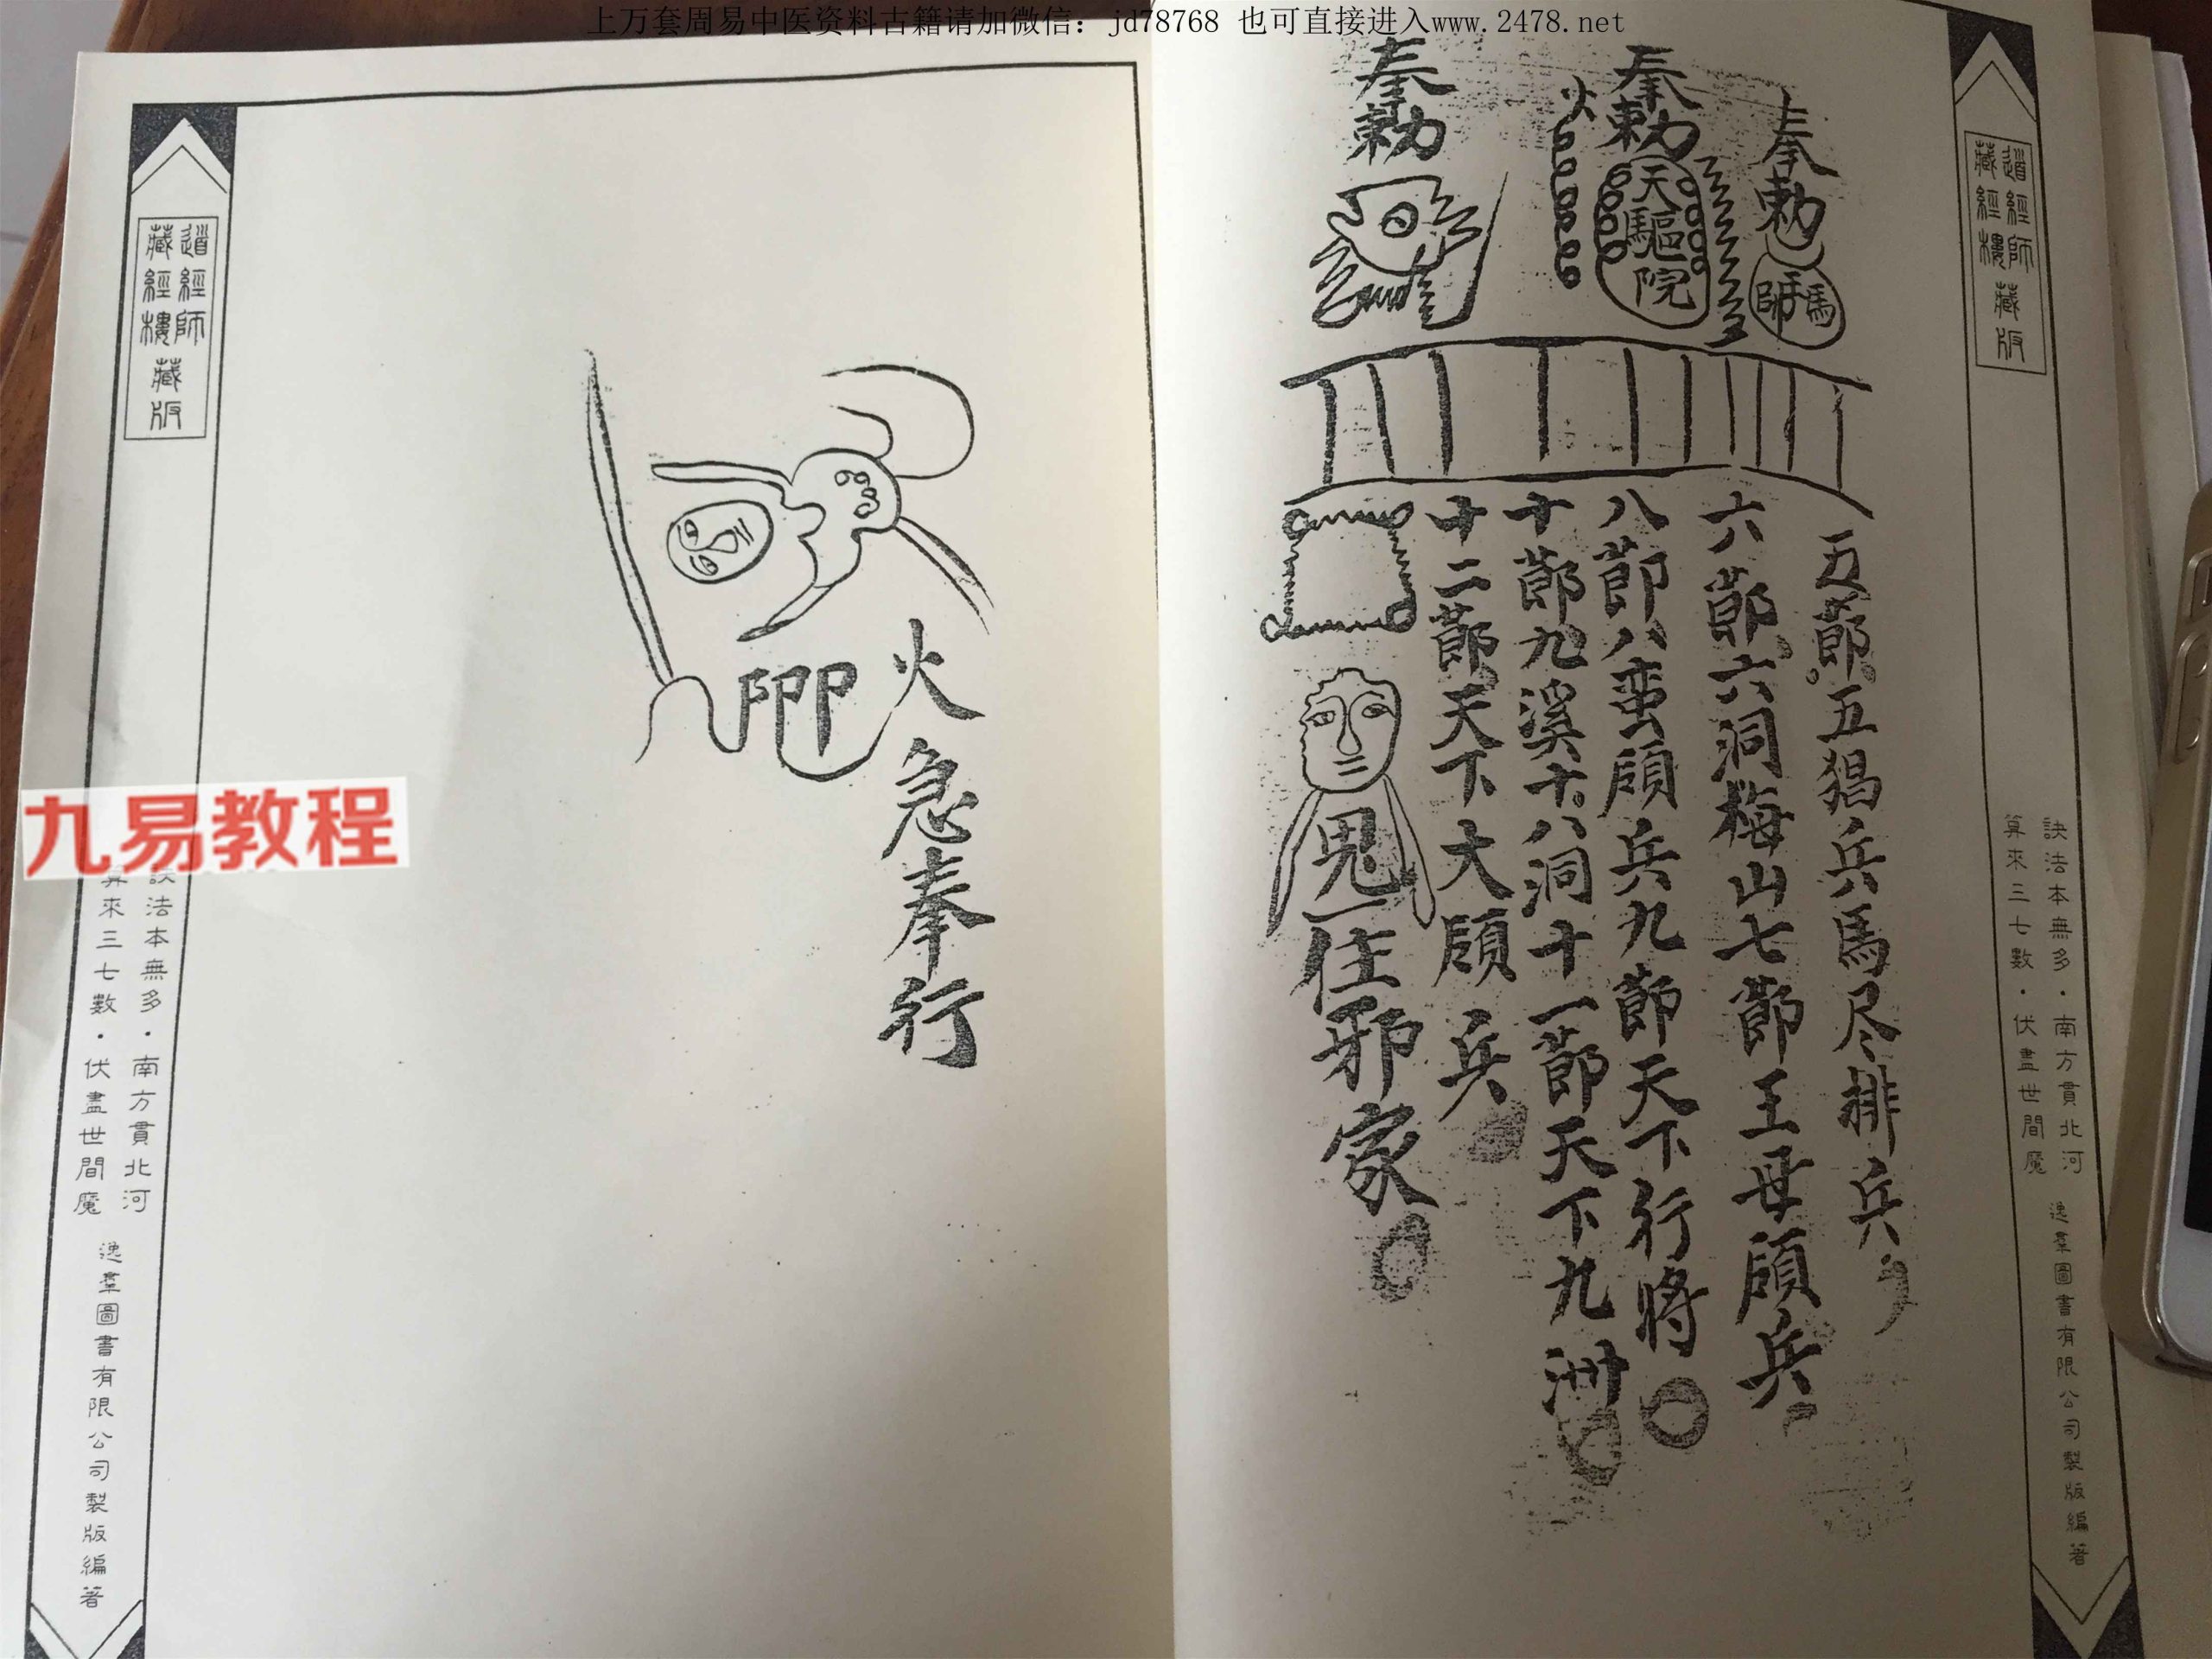 上万套周易中医资料古籍请加微信：jd78768 也可直接进入www.2478.net
道經師
藏經樓
藏版
訣法本無多·南方貫北河
算來三七數·伏盡世間魔
逸羣圖書有限公司製版編著
奉勅
馬
師
奉勅
天驅院
火
奉勅
五節五猖兵馬尽排兵
六節六洞梅山七節王母頋兵
八節八蛮頋兵九節天下行将
十節九溪十八洞十一節天下九洲
十二節天下大頋兵
鬼一住邪家
火急奉行
道經師
藏經樓
藏版
九易教程
訣法本無多·南方貫北河
算來三七數·伏盡世間魔
逸羣圖書有限公司製版編著